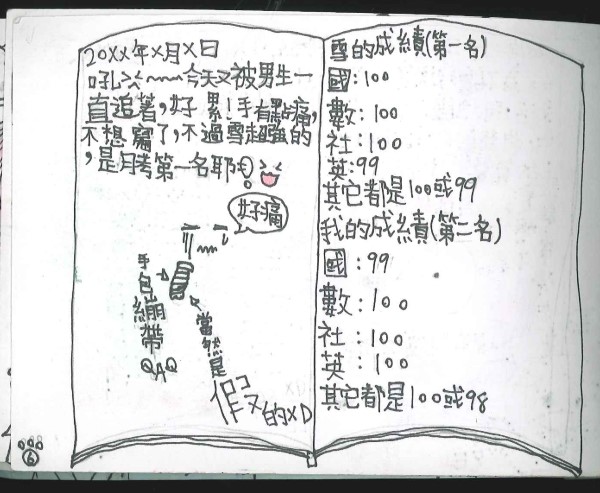 20XX年X月X日
吼>:<~~~~今天又被男生一
直追著,好累!手有點痛,
不想寫了,不過雪超強的
,是月考第一名耶!
好痛
手包繃帶QAQ
當然是假的XD
6
雪的成績(第一名)
國:100
數:100
社:100
英:99
其它都是100或99
我的成績(第二名)
國:99
數:100
社:100
英:100
其它都是100或98